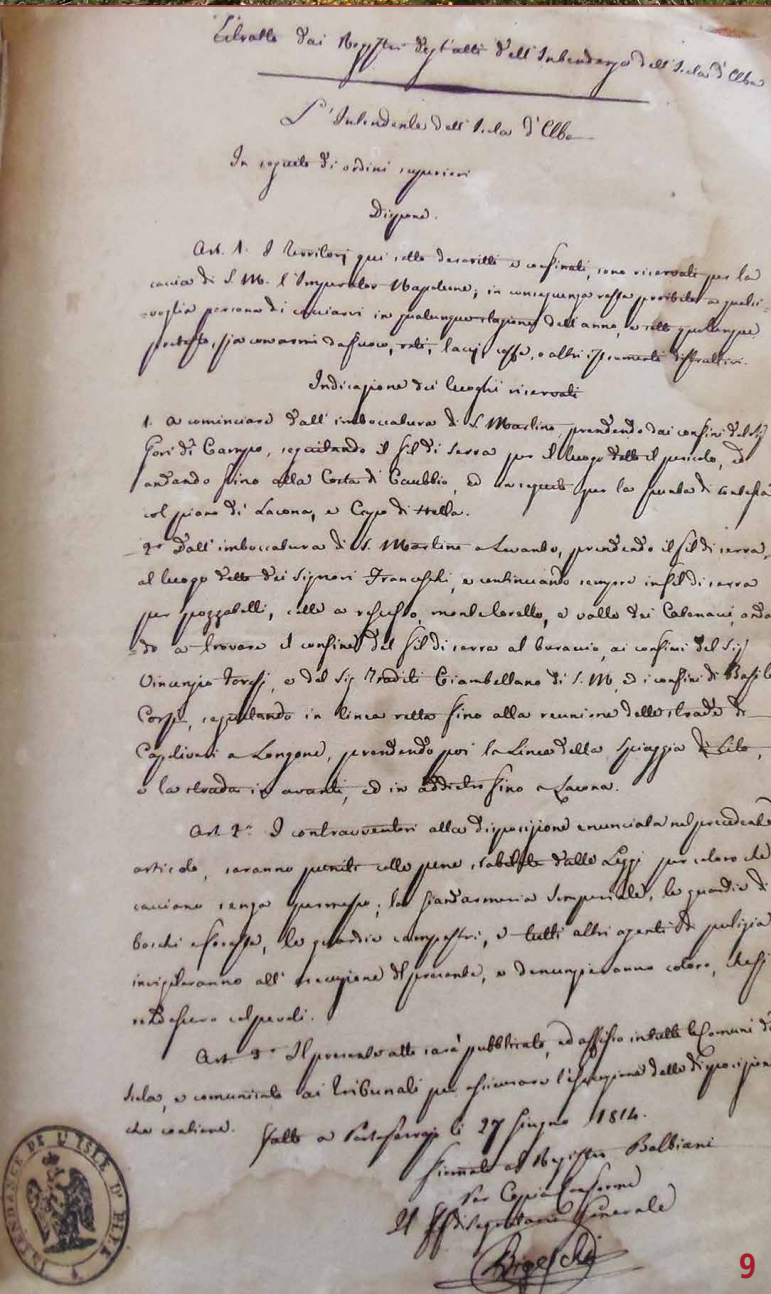 Estratto dai Registri degl'atti dell'Intendenza dell'Isola d'Elba
L'Intendente dell'Isola d'Elba
In seguito di ordini superiori
Dispone.
Art. 1. I Territorj qui sotto descritti e confinati, sono riservati per la
caccia di S. M. l'Imperator Napoleone; in conseguenza resta proibito a qualsi=
=voglia persona di cacciarvi in qualunque stagione dell'anno, e sotto qualunque
pretesto, sia con armi da fuoco, reti, lacci, o altri istrumenti distruttivi.
Indicazione dei luoghi riservati
1. a cominciare dall'imboccatura di S. Martino prendendo dai confini del Sig.
Gori di Campo, seguitando il fil di serra per il luogo detto il pericolo, ed
andando fino alla Costa di ed in seguito per la punta di
col piano di Lacona, e Capo di Stella.
2° Dall'imboccatura di S. Martino a Levante, prendendo il fil di serra,
al luogo detto dei Signori Franceschi, e continuando sempre in fil di serra
per pozzatelli, colle a monte Lorello, e valle dei Catenacci, anda
=do a trovare il confine del fil di serra al buraccio, ai confini del Sig.
Vincenzio e del Sig. Traditi Ciambellano di S. M, ed i confini di
seguitando in linea retta fino alla reunione delle strade di
Capoliveri a Longone, prendendo poi la Linea della Spiaggia di Lido,
e la strada in avanti, ed in addietro fino a Lacona.
Art. 2°. I contravventori alla disposizione enunciata nel precedente
articolo, saranno puniti colle pene stabilite dalle Leggi per coloro che
cacciano senza permesso; la Giandarmeria Imperiale, le guardie di
boschi e foreste, le guardie campestri, e tutti altri agenti di pulizia
invigileranno all'esecuzione del presente, e denunzieranno coloro, che si
rendessero colpevoli.
Art. 3° Il presente atto sarà pubblicato, ed affisso in tutte le Comuni dell'
Isola, e comunicato ai Tribunali per assicurare l'esecuzione delle disposizioni
che contiene. Fatto a Portoferrajo li 27 Giugno 1814.
Firmato al Registro Balbiani
Per Copia Conforme
Il Segretario Generale
INTENDANCE DE L'ISLE D'ELBE
9